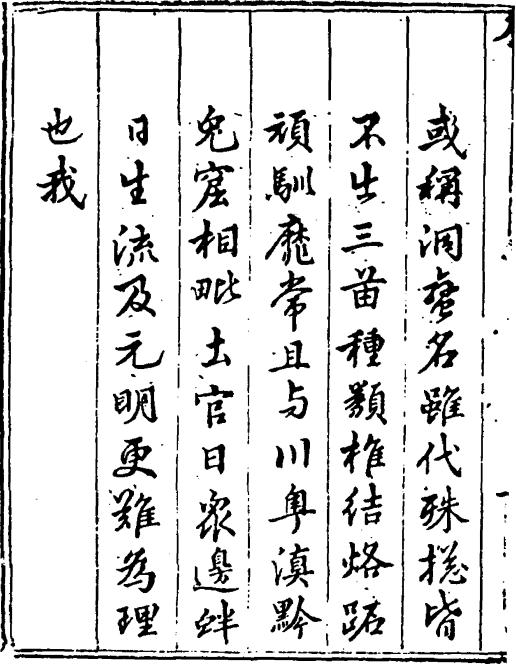 或稱洞蠻名雖代殊揔皆
不出三苗種類椎結烙跖
頑馴靡常且与川粤滇黔
兔窟相毗土官日衆邊衅
日生流及元明更難為理
也我